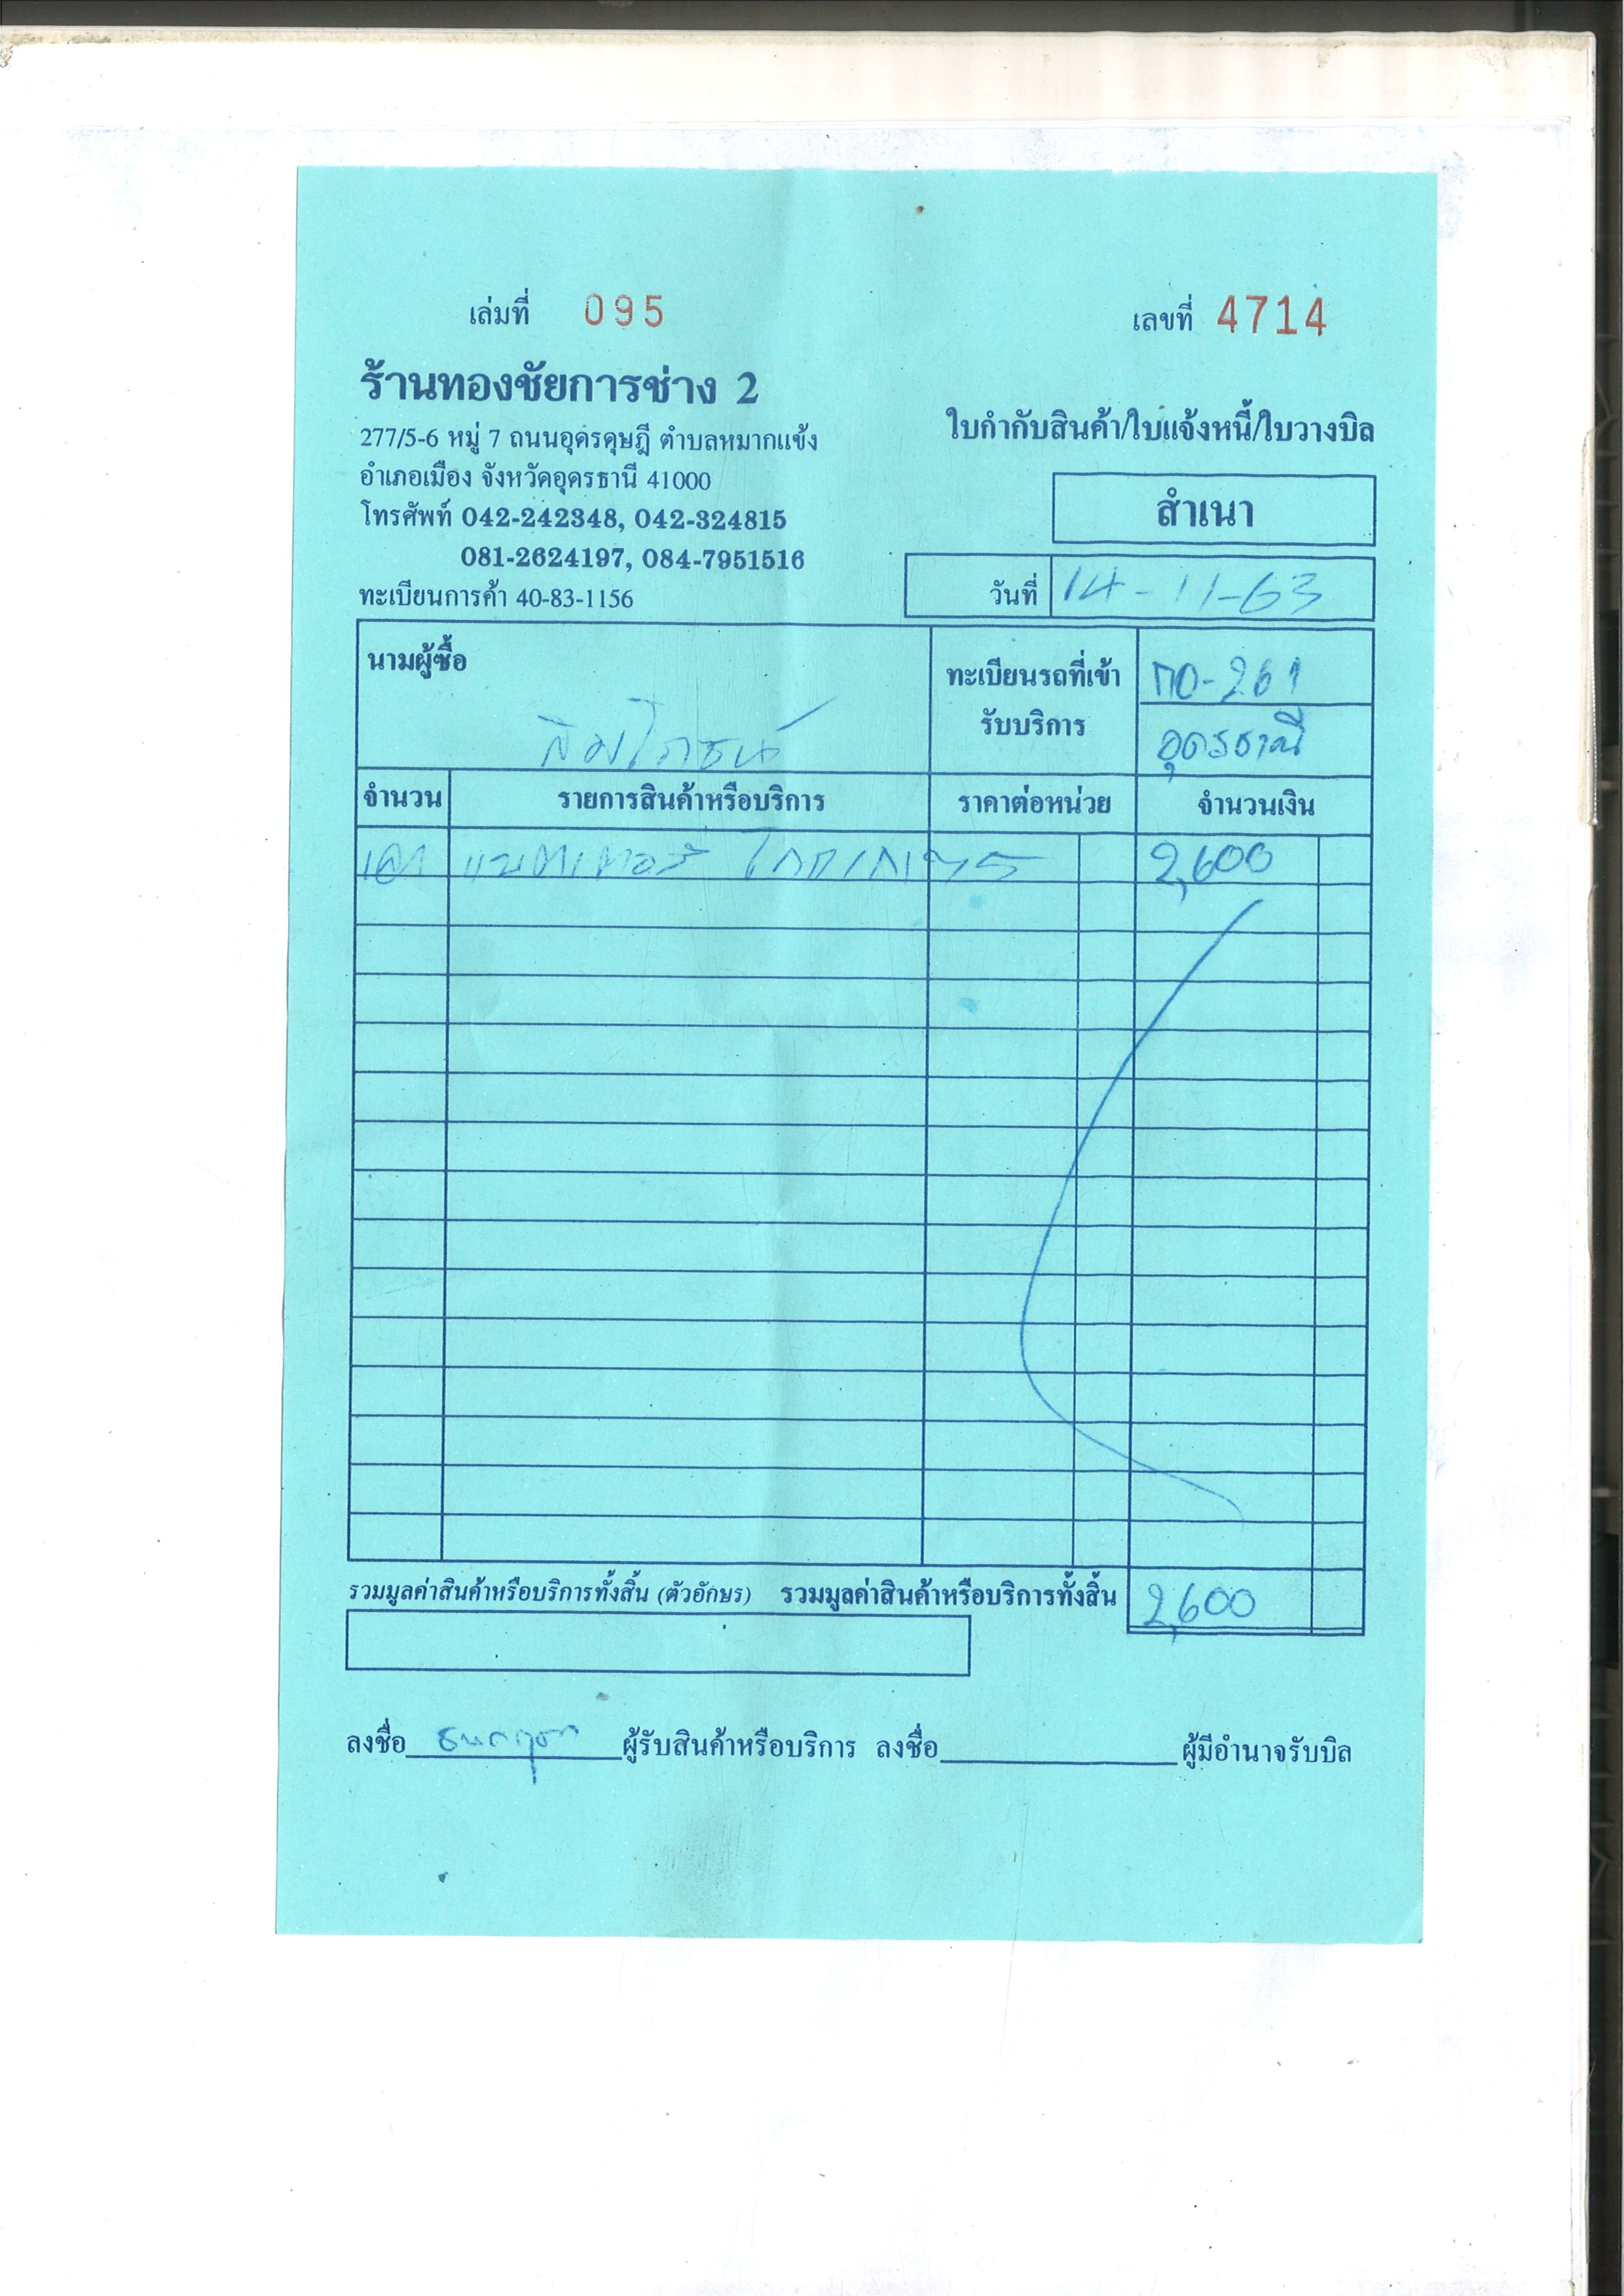 เล่มที่ 095 เลขที่ 4714
ร้านทองชัยการช่าง 2
277/5-6 หมู่ 7 ถนนอุดรดุษฎี ตำบลหมากแข้ง
ใบกำกับสินค้า/ใบแจ้งหนี้/ใบวางบิล
อำเภอเมือง จังหวัดอุดรธานี 41000
สำเนา
โทรศัพท์ 042-242348, 042-324815
081-2624197, 084-7951516
วันที่ 14-11-63
ทะเบียนการค้า 40-83-1156
นามผู้ซื้อ
ทะเบียนรถที่เข้า
รับบริการ
กо-261
อุดรธานี
จำนวน รายการสินค้าหรือบริการ ราคาต่อหน่วย จำนวนเงิน
แบตเตอรี่ 2,600
รวมมูลค่าสินค้าหรือบริการทั้งสิ้น (ตัวอักษร) รวมมูลค่าสินค้าหรือบริการทั้งสิ้น 2,600
ลงชื่อ ผู้รับสินค้าหรือบริการ ลงชื่อ ผู้มีอำนาจรับบิล